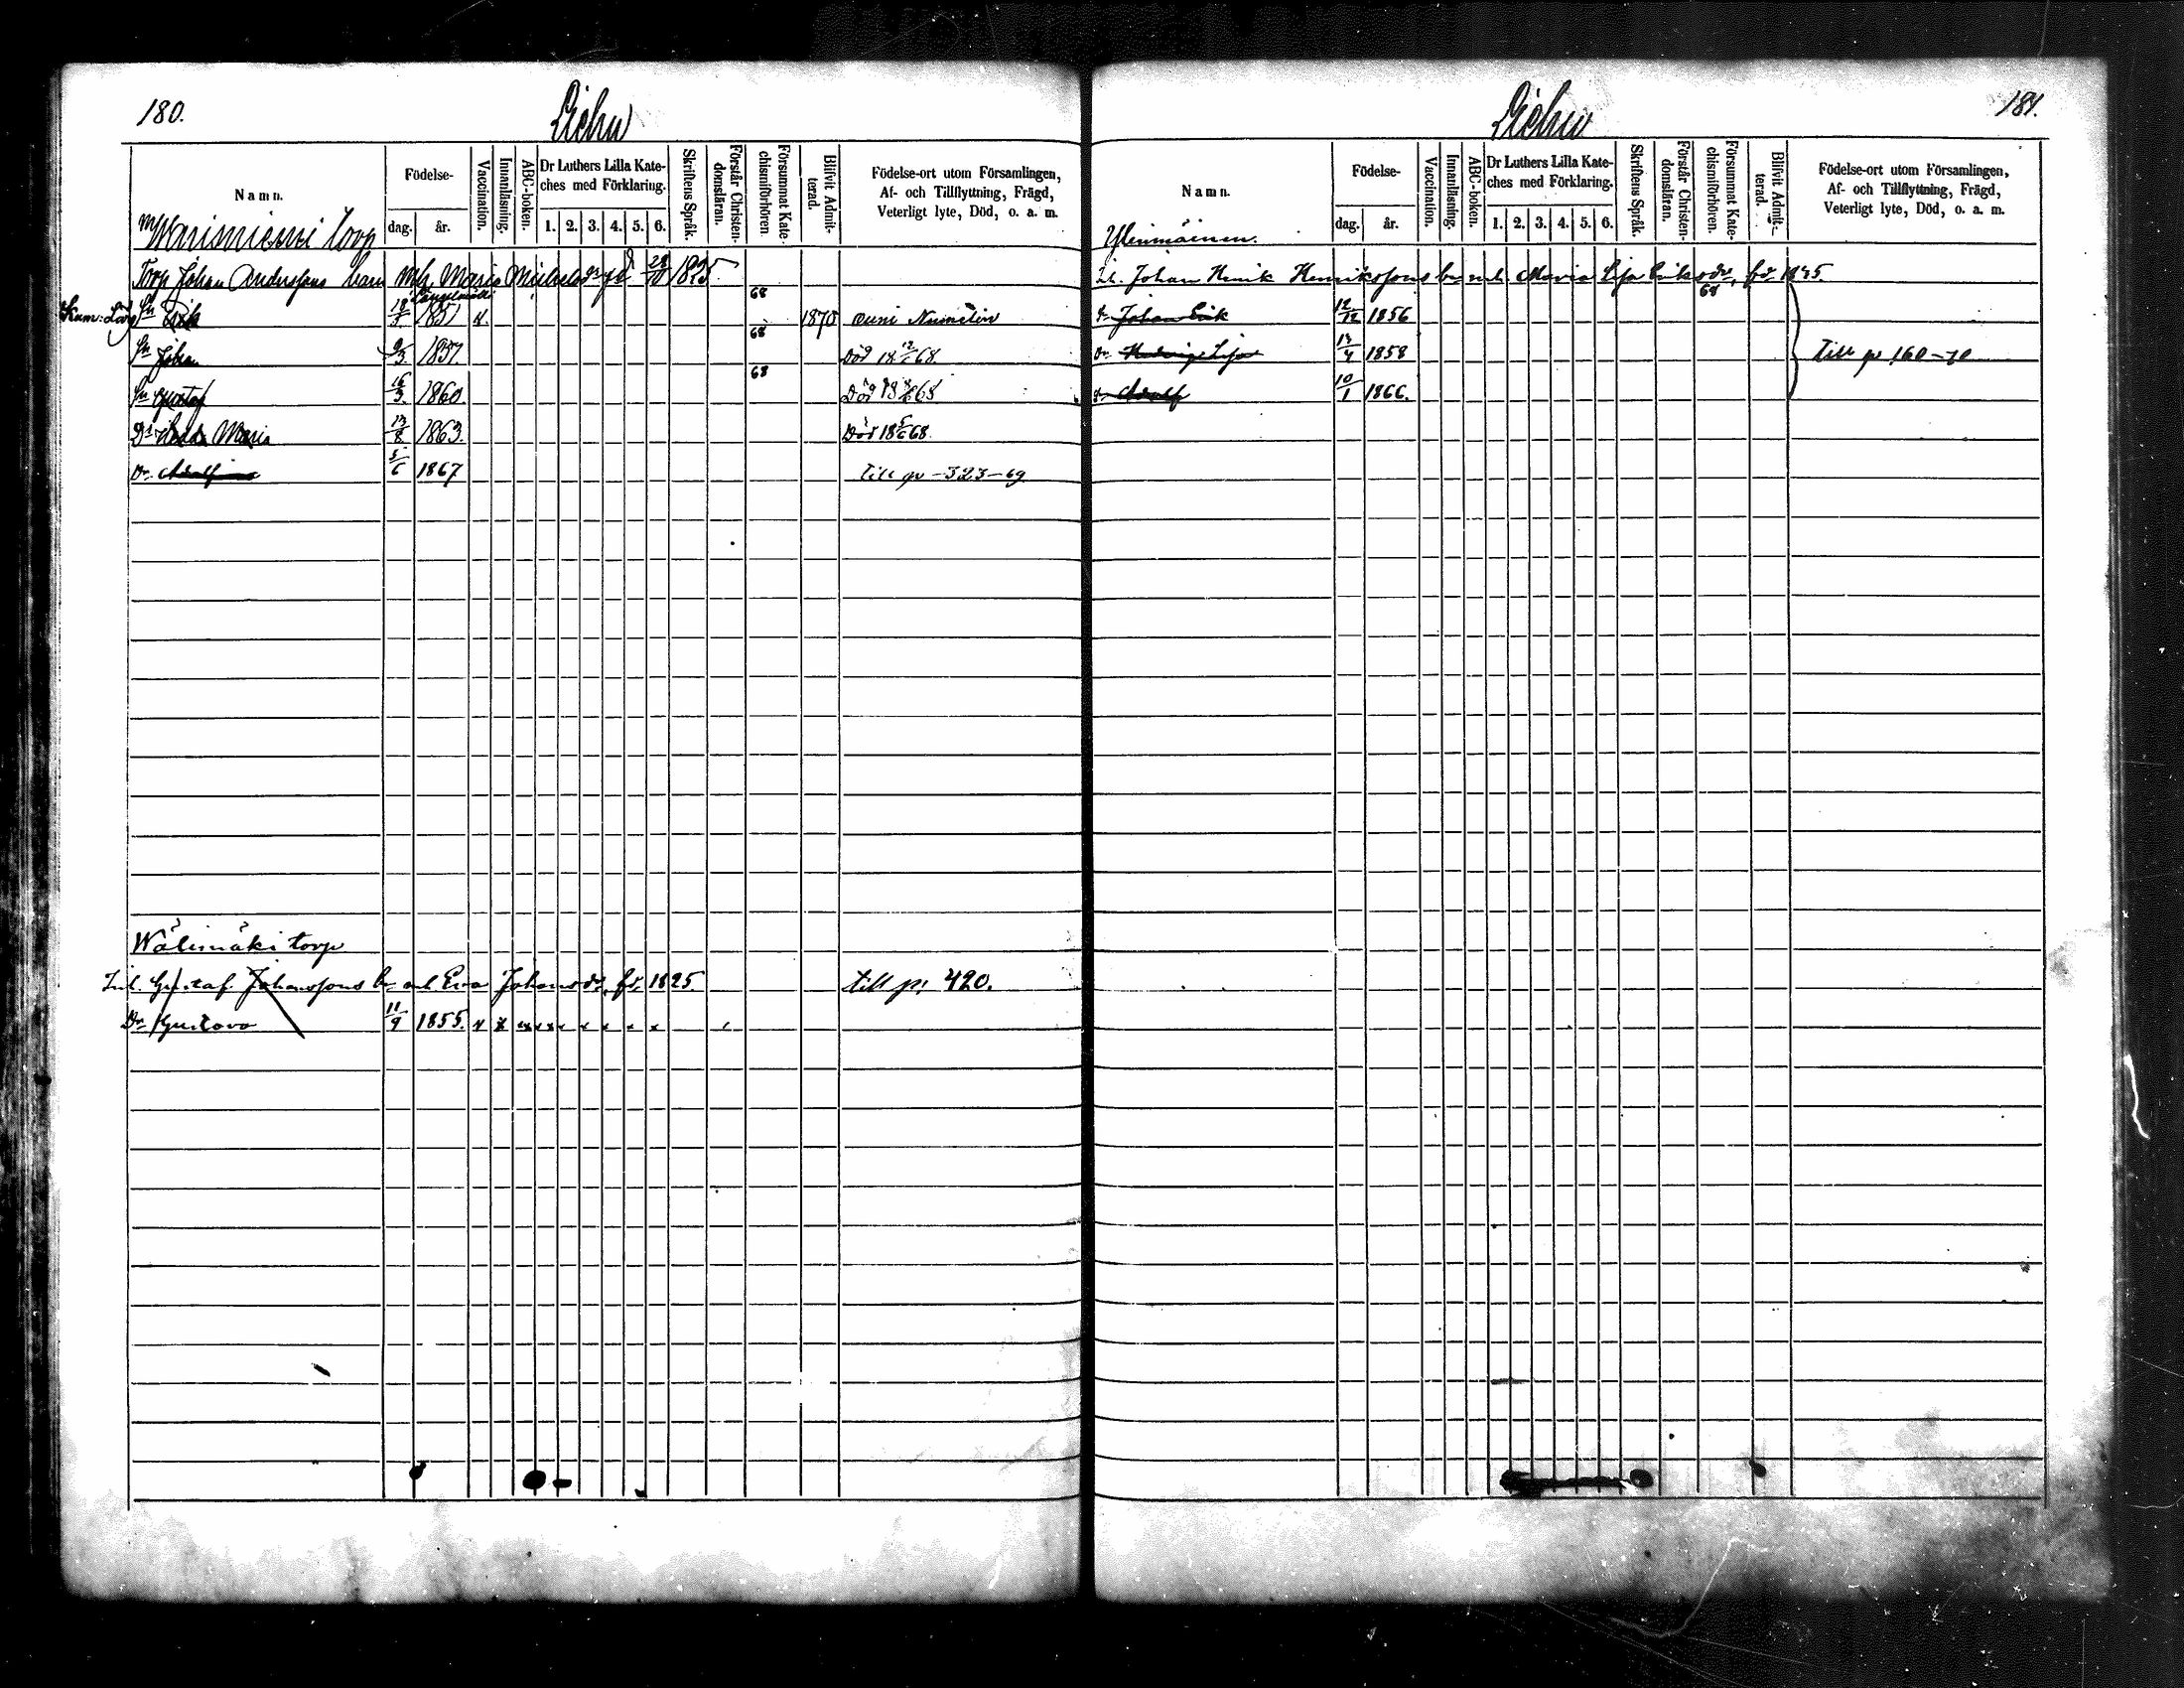 180.
Lichu
Namn.
Födelse-
dag.
år.
Vaccination.
Innanläsning.
ABC-boken.
Dr Luthers Lilla Kate-
ches med Förklaring.
1. 2. 3. 4. 5. 6.
Skriftens Språk.
Förstår Christen-
domsläran.
Försummat Kate-
chismiförhören.
Blifvit Admit-
terad.
Födelse-ort utom Församlingen,
Af- och Tillflyttning, Frägd,
Veterligt lyte, Död, o. a. m.
Torp
Torp Johan Anderssons barn m h Maria Michelsdr fd 28/10 1825
Sn Erik 1851 x 68 1870
Sn Johan 9/3 1857. 68 Död 18 12/6 68.
Sn Gustaf 16/3 1860. 68 Död 18 68
Dr Maria 13/8 1863. Död 18 5/6 68.
Dr Adolfina 5/6 1867 till p 323-69
Wälimäki torp
Inh. Gustaf Johanssons bn m h Eva Johansdr, fd. 1825. till p. 420.
Dr Gustava 11/9 1855. x x x x x x x x x x
181.
Lichu
Namn.
Födelse-
dag.
år.
Vaccination.
Innanläsning.
ABC-boken.
Dr Luthers Lilla Kate-
ches med Förklaring.
1. 2. 3. 4. 5. 6.
Skriftens Språk.
Förstår Christen-
domsläran.
Försummat Kate-
chismiförhören.
Blifvit Admit-
terad.
Födelse-ort utom Församlingen,
Af- och Tillflyttning, Frägd,
Veterligt lyte, Död, o. a. m.
Ylenmäinen.
Johan Henrik Henrikssons bn m h Maria Lisa Eriksdr, fd.
Johan Erik 12/12 1856 68
Dr Hedvig Lisa 13/4 1858 Till p 160-70
Adolf 10/1 1866.